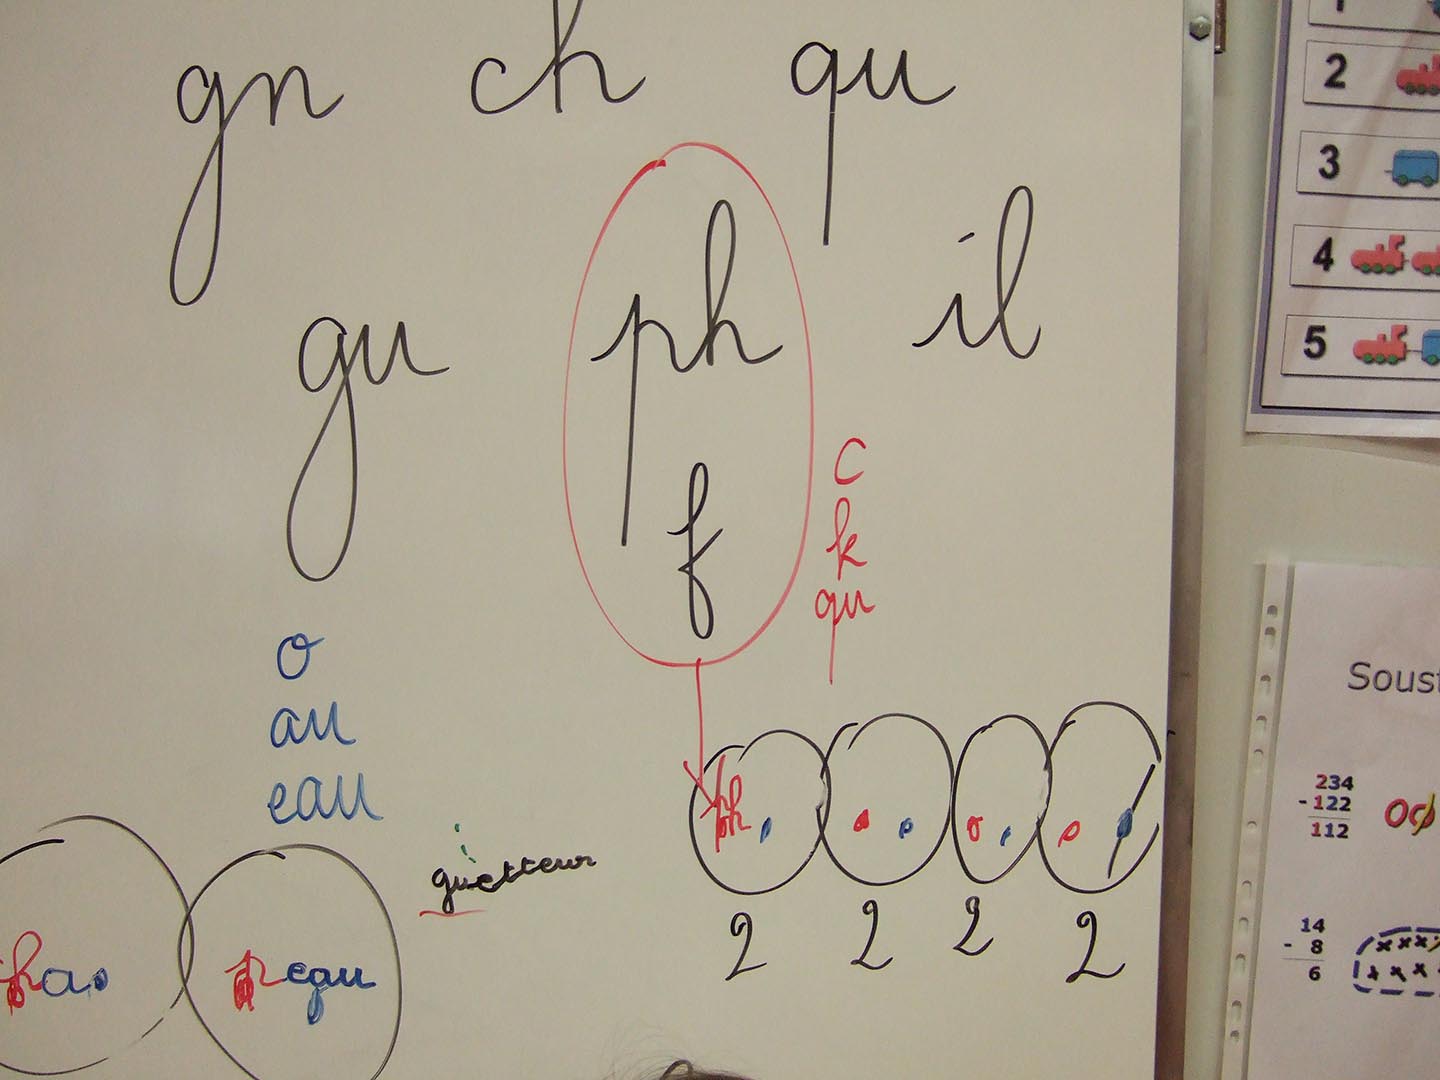 gn ch qu
gu ph il
f
c
k
qu
o
au
eau
guetteur
ph
2 2 2 2
peau
1
2
3
4
5
Soust
234
- 122
112
14
- 8
6